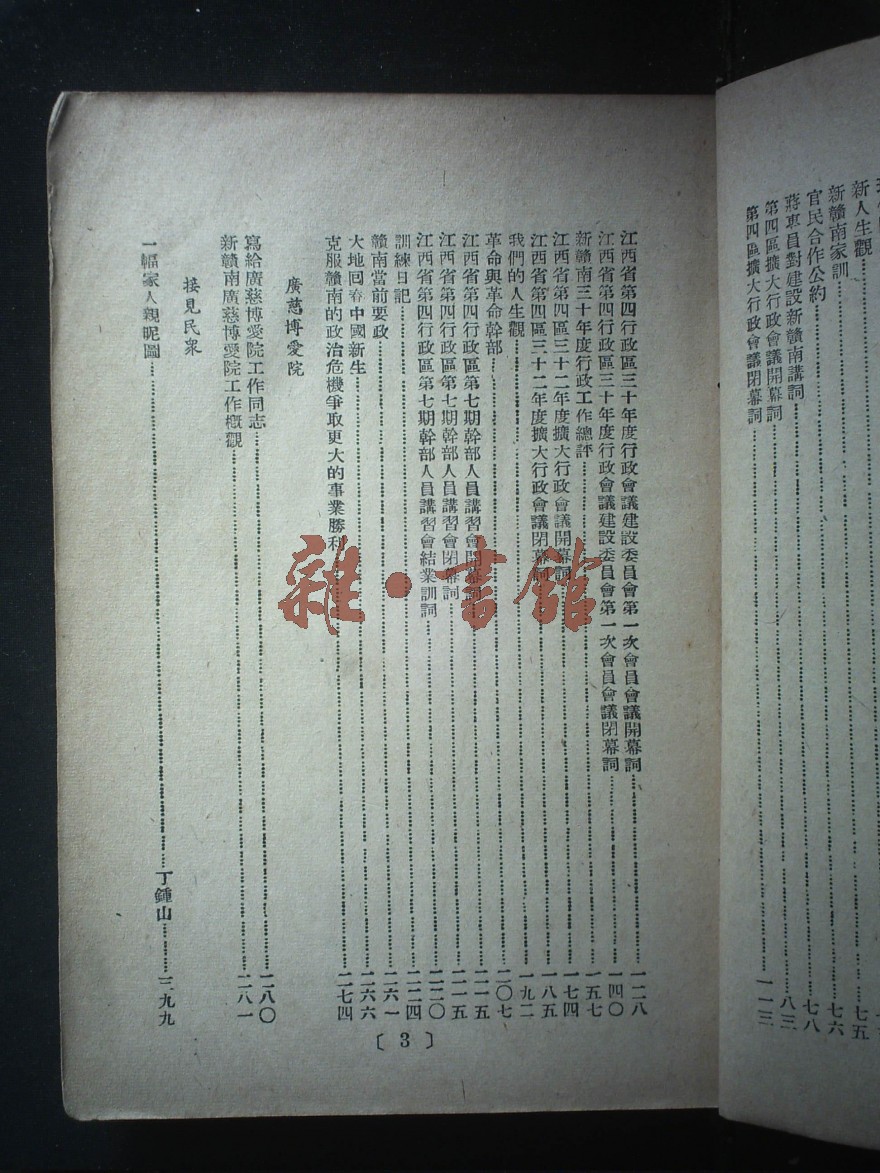 新人生觀……七五
新贛南家訓……七六
官民合作公約……七八
蔣專員對建設新贛南講詞……八三
第四區擴大行政會議開幕詞
第四區擴大行政會議閉幕詞……一一三
江西省第四行政區三十年度行政會議建設委員會第一次會員會議開幕詞……一二八
江西省第四行政區三十年度行政會議建設委員會第一次會員會議閉幕詞……一四〇
新贛南三十年度行政工作總評……一五七
江西省第四區三十二年度擴大行政會議開幕詞……一七四
江西省第四區三十二年度擴大行政會議閉幕詞……一八五
我們的人生觀……一九二
革命與革命幹部……二〇七
江西省第四行政區第七期幹部人員講習會開幕詞……二一五
江西省第四行政區第七期幹部人員講習會閉幕詞……二一五
江西省第四行政區第七期幹部人員講習會結業訓詞……二二〇
訓練日記……二二四
贛南當前要政……二六一
大地回春中國新生……二六六
克服贛南的政治危機爭取更大的事業勝利……二七四
廣慈博愛院
寫給廣慈博愛院工作同志……二八〇
新贛南廣慈博愛院工作概觀……二八一
接見民衆
一幅家人親昵圖……丁鍾山……二九九
〔3〕
雜·書館